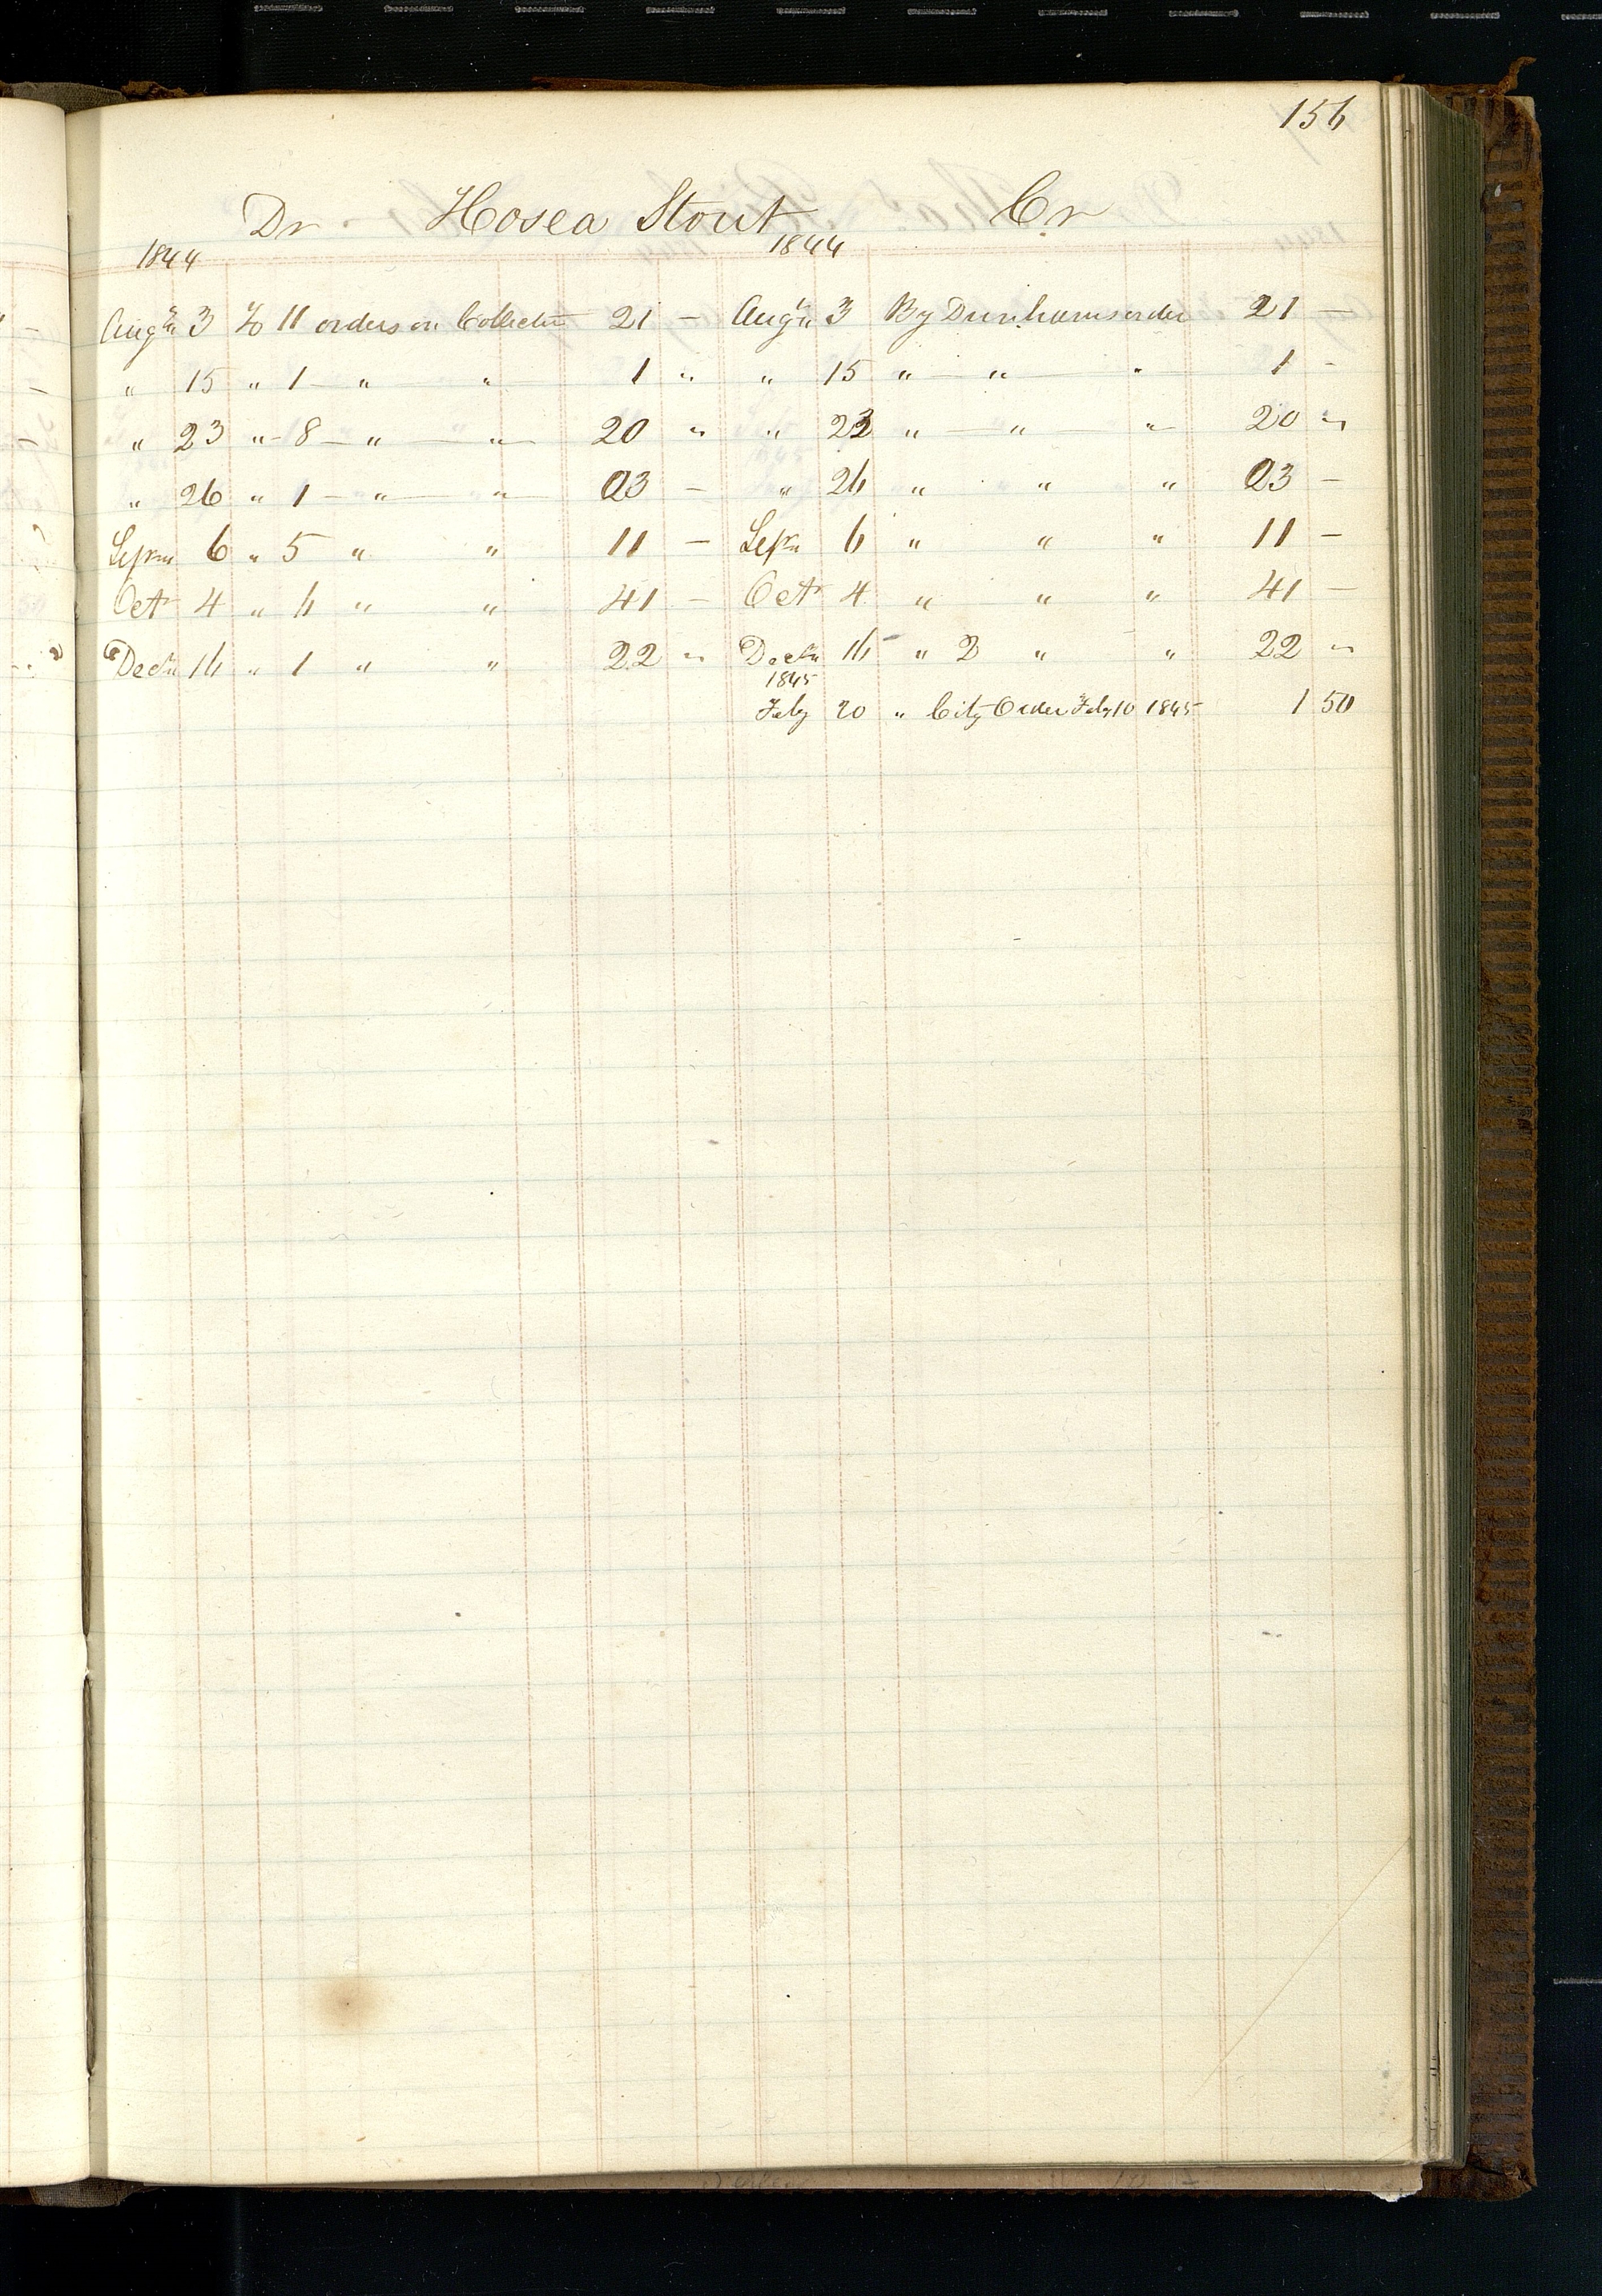 156
Dr Hosea Stout Cr
1844 1844
Augt 3 To 11 orders on Collector 21 — Augt 3 By Dunhams order 21 —
" 15 " 1 — " " 1 " " 15 " — " — " 1 -
" 23 " - 8 — " — " — 20 " " 23 " — " " — 20 "
" 26 " 1 — " — " — 03 — " 26 " " " 03 —
Sept 6 " 5 " " 11 — Sept 6 " " " 11 —
Oct 4 " 6 " " 41 — Oct 4 " " " 41 —
Decr 16 " 1 " " 22 " Decr 16 " 2 " " 22 "
1845
Feby 20 " City Order Feby 10 1845 1 50